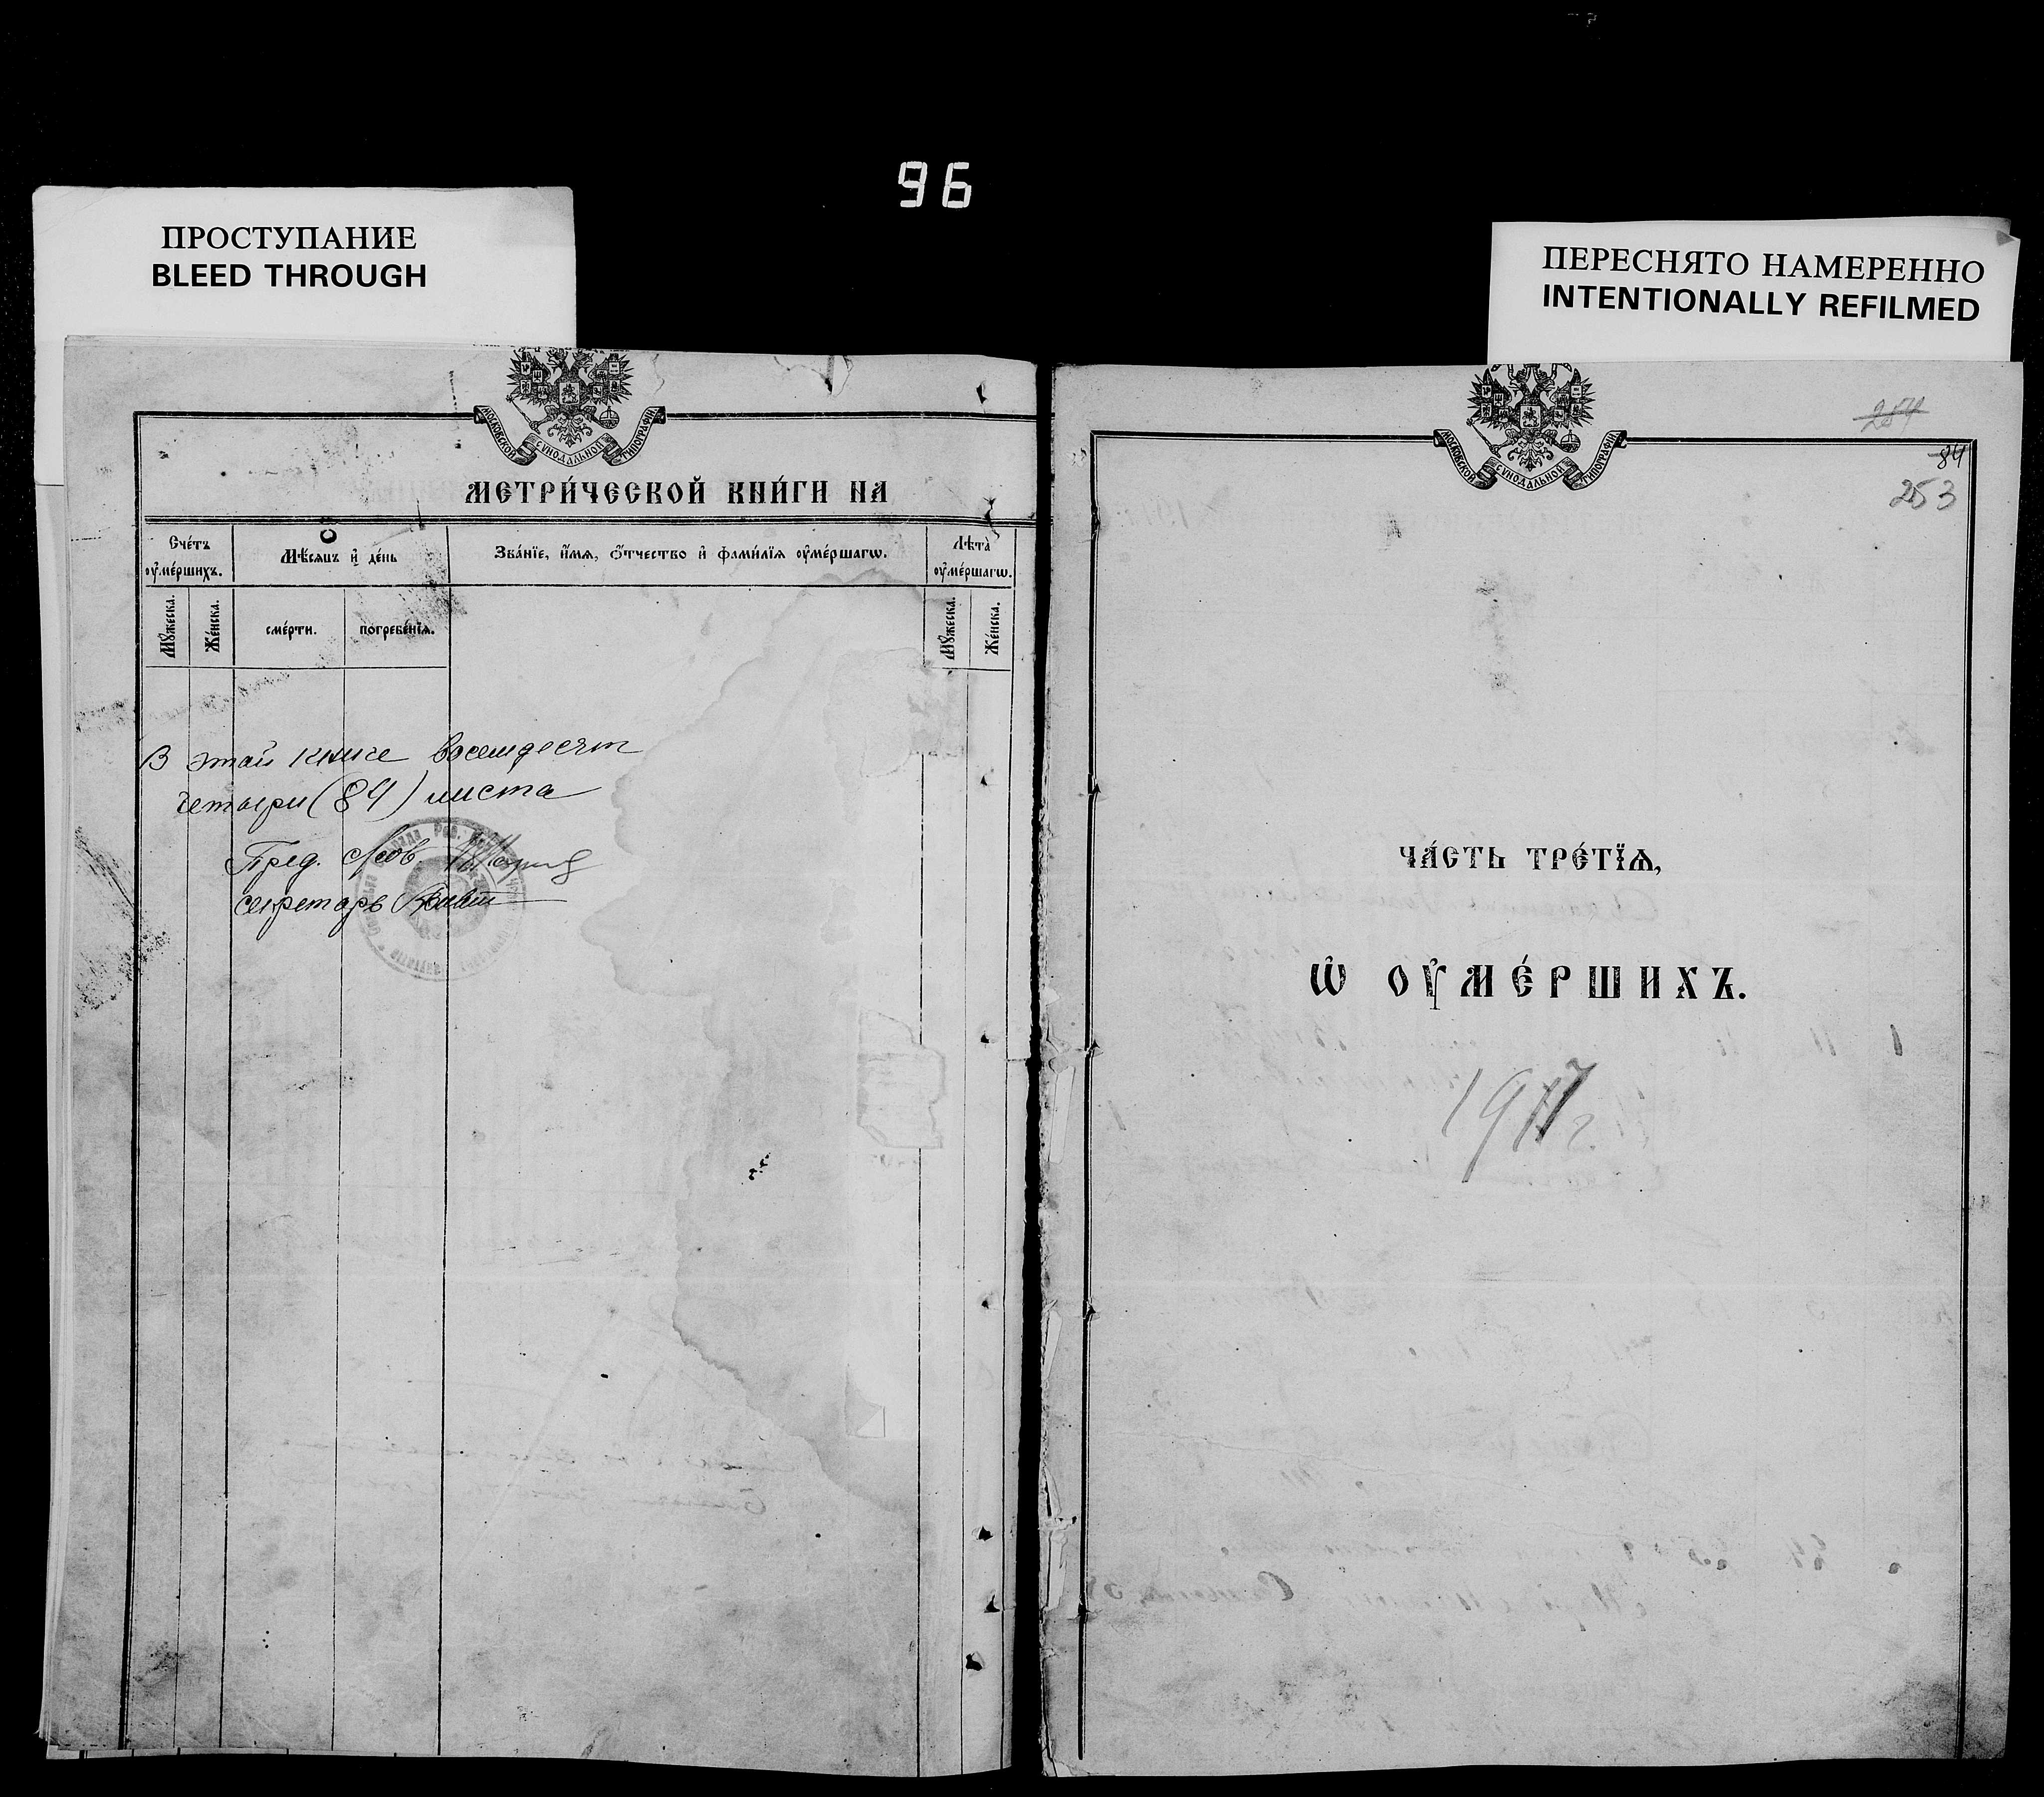 96
ПРОСТУПАНИЕ
BLEED THROUGH
ПЕРЕСНЯТО НАМЕРЕННО
INTENTIONALLY REFILMED
МОСКОВСКОЙ СѴНОДАЛЬНОЙ ТИПОГРАФІИ
МЕТРИ́ЧЕСКОЙ КНИ́ГИ НА
Сче́тъ оу҆ме́ршихъ.
Мѣ́сяцъ и҆ де́нь
Зва́нїе, и҆́мѧ, ѻ҆́тчество и҆ фами́лїѧ оу҆ме́ршагѡ.
Лѣта̀ оу҆ме́ршагѡ.
Мꙋ́жеска.
Же́нска.
сме́рти.
погребе́нїѧ.
Мꙋ́жеска.
Же́нска.
В этой книге восемдесят
четыри (84) листа
Пред.
секретарь
МОСКОВСКОЙ СѴНОДАЛЬНОЙ ТИПОГРАФІИ
254
84
253
ЧА́СТЬ ТРЕ́ТЇѦ,
Ѡ҆ ОУ҆МЕ́РШИХЪ.
1917 г.